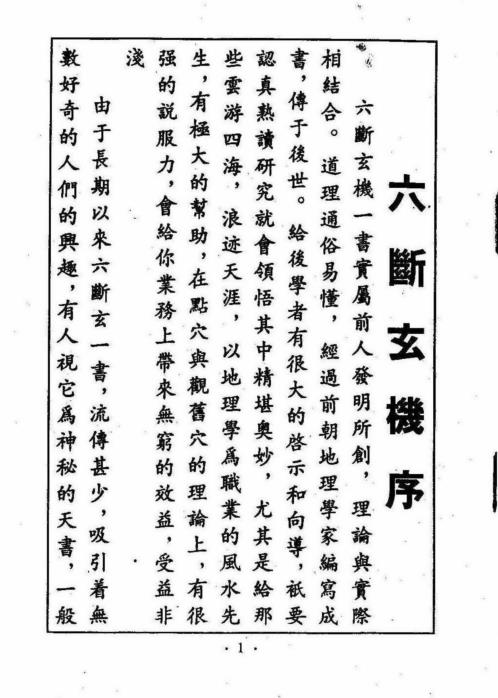 六斷玄機序
六斷玄機一書實屬前人發明所創，理論與實際
相結合。道理通俗易懂，經過前朝地理學家編寫成
書，傳于後世。給後學者有很大的啓示和向導，祇要
認真熟讀研究就會領悟其中精堪奧妙，尤其是給那
些雲游四海，浪迹天涯，以地理學爲職業的風水先
生，有極大的幫助，在點穴與觀舊穴的理論上，有很
强的説服力，會給你業務上帶來無窮的效益，受益非
淺
由于長期以來六斷玄一書，流傳甚少，吸引着無
數好奇的人們的興趣，有人視它爲神秘的天書，一般
·1·